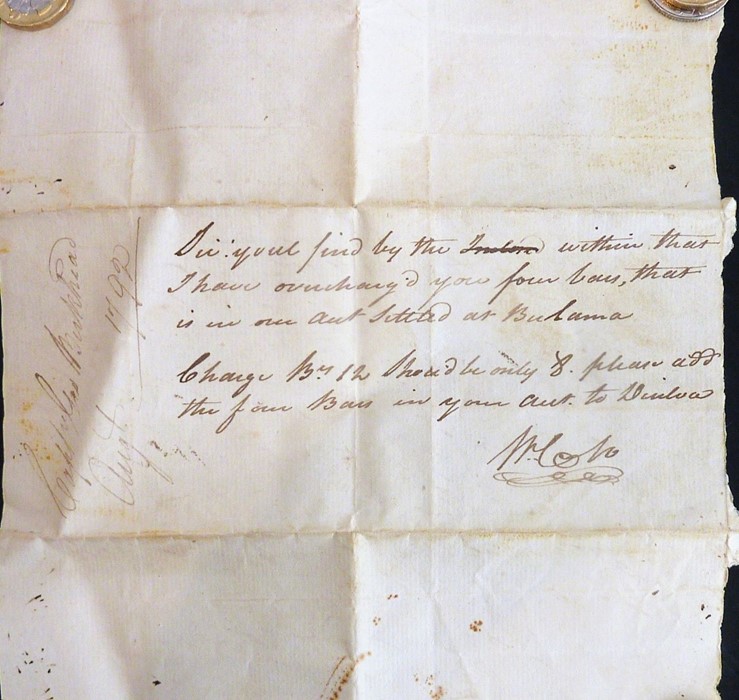 Sir: youl find by the within that
I have overcharg'd you four bars, that
is in our Acct Settled at Bulama
Charge Brs 12 Should be only 8. please add
the four Bars in your Acct. to
Wm
Augt 1792